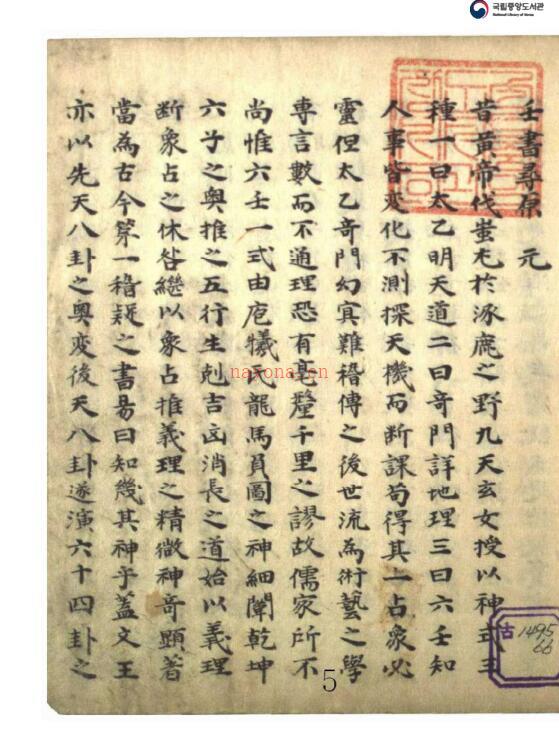 국립중앙도서관
National Library of Korea
壬書尋原 元
昔黃帝伐蚩尤於涿鹿之野九天玄女授以神式三
種一曰太乙明天道二曰奇門詳地理三曰六壬知
人事皆変化不測探天機而断課苟得其一占象必
靈但太乙奇門幻宾難稽傳之後世流為術藝之學
專言數而不通理恐有毫釐千里之謬故儒家所不
尚惟六壬一式由庖犧氏龍馬員圖之神細闡乾坤
六子之奥推之五行生剋吉凶消長之道始以義理
断象占之休咎繼以象占推義理之精微神奇顯著
當為古今第一稽疑之書易曰知幾其神乎蓋文王
亦以先天八卦之奥変後天八卦遂演六十四卦之
古
1495
66
nayona.cn
5